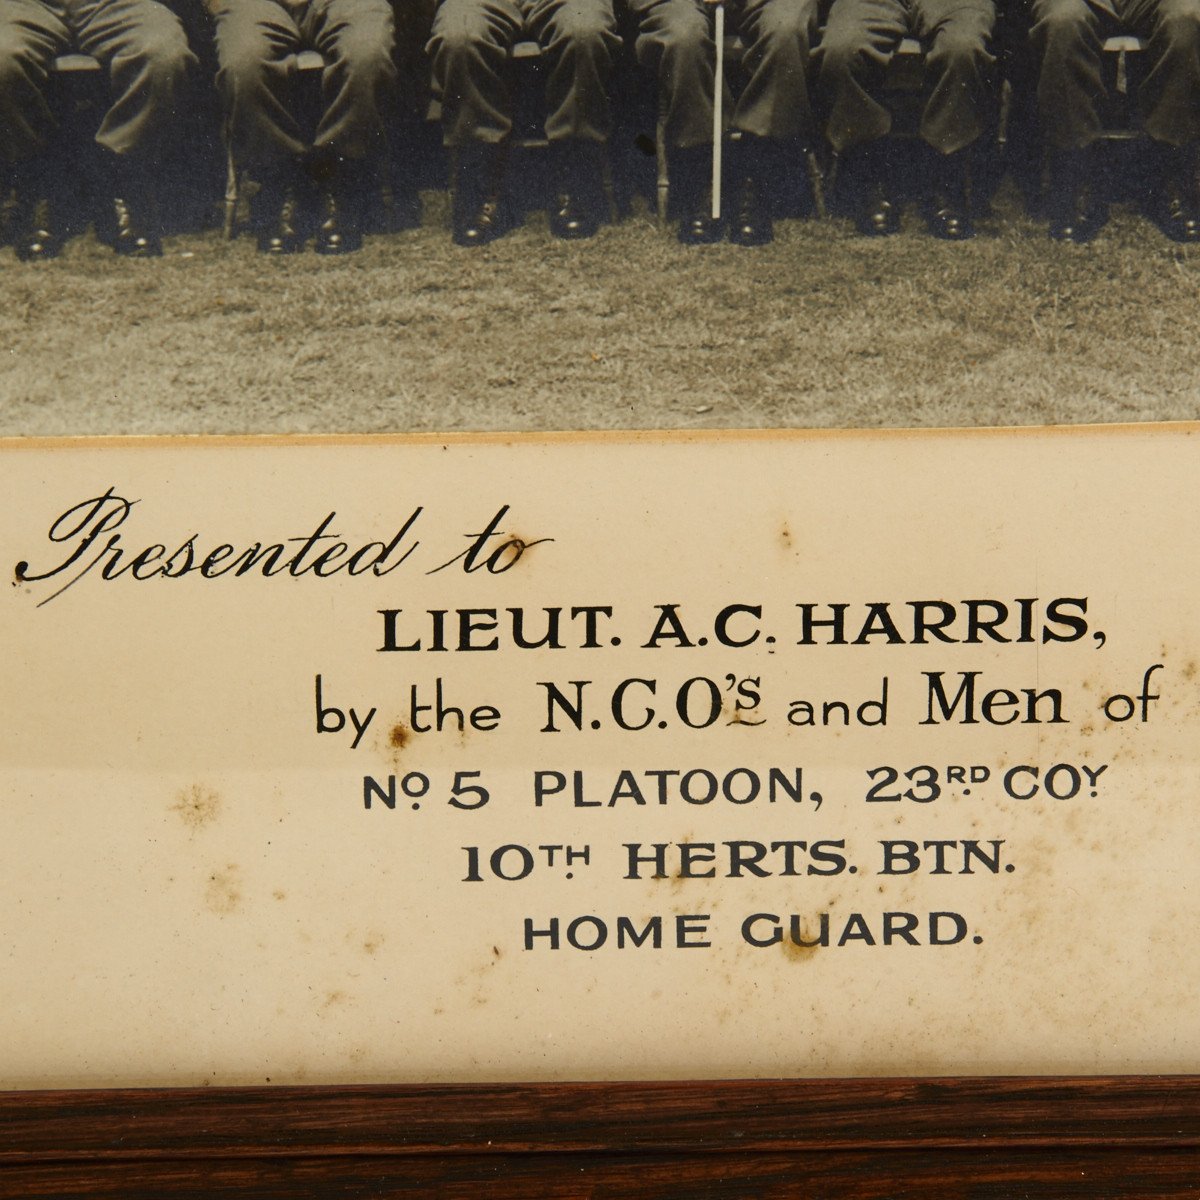 Presented to
LIEUT. A.C. HARRIS,
by the N.C.O's and Men of
No. 5 PLATOON, 23RD COY.
10TH HERTS. BTN.
HOME GUARD.